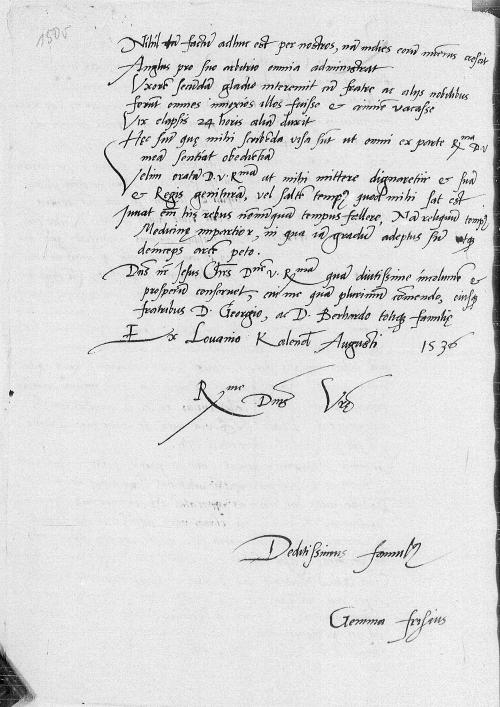 1505
Nihil tn̄ factū adhuc est per nostros, nā indies eorū numerus crescit
Anglus pro suo arbitrio omnia administrat
Vxorē secūdā gladio interemit cū fratre ac alijs nobilibus
ferūt omnes innoxios illos fuisse & crimine vacasse
Vix elapsis 24 horis aliā duxit
Hec sūt quę mihi scribēda visa sūt ut omni ex parte R^ma D.V
meā sentiat obedietiā
Velim oratā D.v.R^mā ut mihi mittere dignaretur & suā
& Regis geniturā, vel saltē tempꝰ quod mihi sat est
Iuuat em̄ his rebus nonnunquā tempus fallere, Nā reliquū tempꝰ
Medicinę impartior, in qua iā gradū adeptus sū atqꝫ
deinceps artē peto.
Dn̄s nr̄ Jesus Chrs D^nem v. R^mā quā diutissime incolumē &
prosperū conseruet, cui me quā plurimū cōmendo, eiusqꝫ
fratribus D. Georgio, ac D. Berhardo totiqꝫ familię
Ex Louanio Kalend̄ Augusti 1536
R^me Dn̄is Vrę
Deditissimus famulꝰ
Gemma frisius